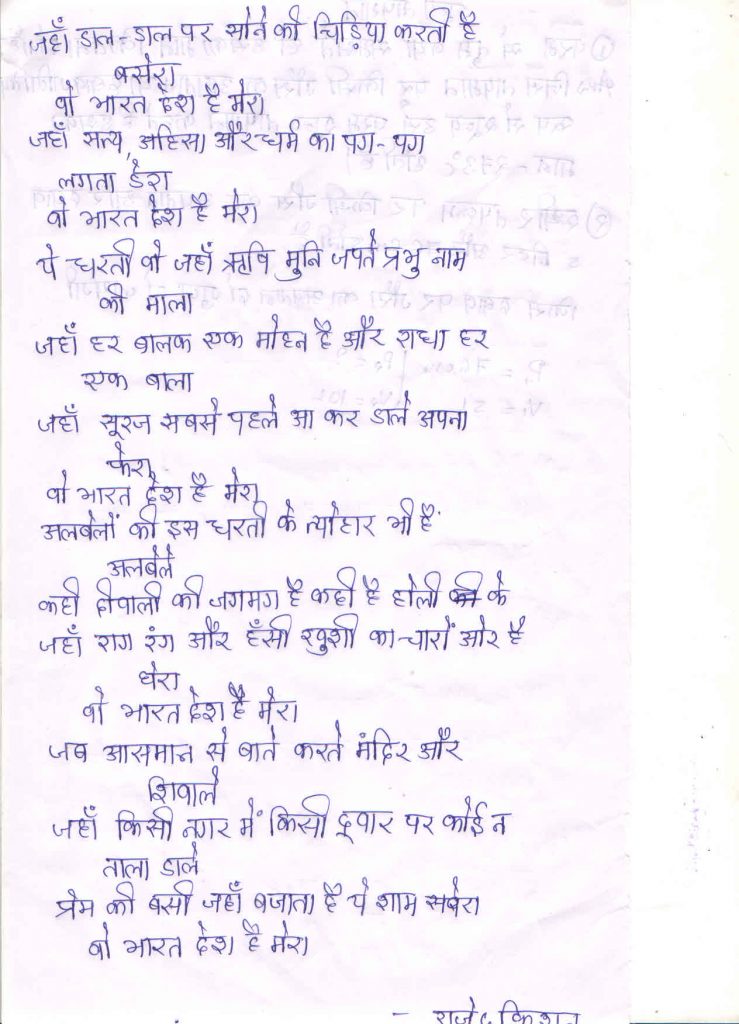 जहाँ डाल-डाल पर सोने की चिड़िया करती है
बसेरा
वो भारत देश है मेरा
जहाँ सत्य, अहिंसा और धर्म का पग-पग
लगता डेरा
वो भारत देश है मेरा
ये धरती वो जहाँ ऋषि मुनि जपते प्रभु नाम
की माला
जहाँ हर बालक एक मोहन है और राधा हर
एक बाला
जहाँ सूरज सबसे पहले आ कर डाले अपना
फेरा
वो भारत देश है मेरा
अलबेलों की इस धरती के त्योहार भी हैं
अलबेले
कही दीवाली की जगमग है कही है होली के
जहाँ राग रंग और हँसी खुशी का चारों ओर है
घेरा
वो भारत देश है मेरा
जब आसमान से बाते करते मंदिर और
शिवाले
जहाँ किसी नगर में किसी द्वार पर कोई न
ताला डाले
प्रेम की बसी जहाँ बजाता है ये शाम सवेरा
वो भारत देश है मेरा